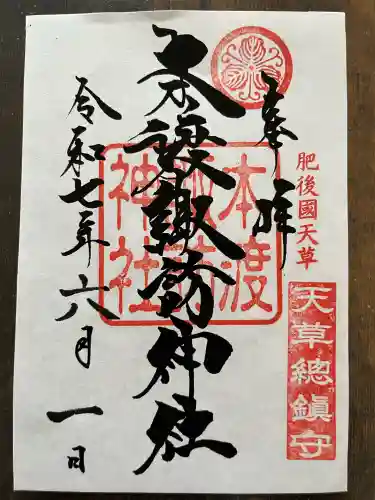 奉拝
肥後國天草
天草總鎮守
本渡諏訪神社
本渡諏訪神社
令和七年六八月一日